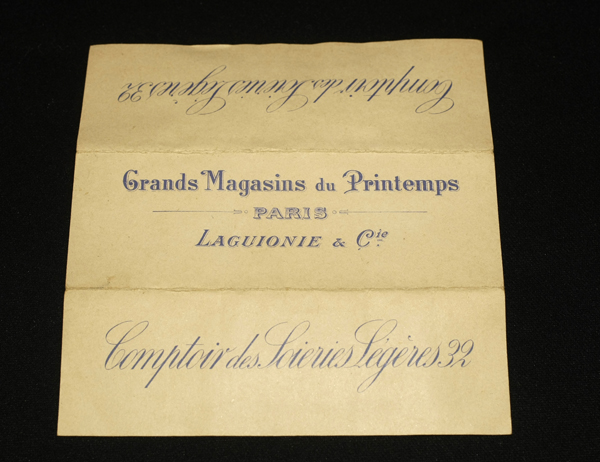 Comptoir des Soieries Légères 32
Grands Magasins du Printemps
PARIS
LAGUIONIE & Cie
Comptoir des Soieries Légères 32